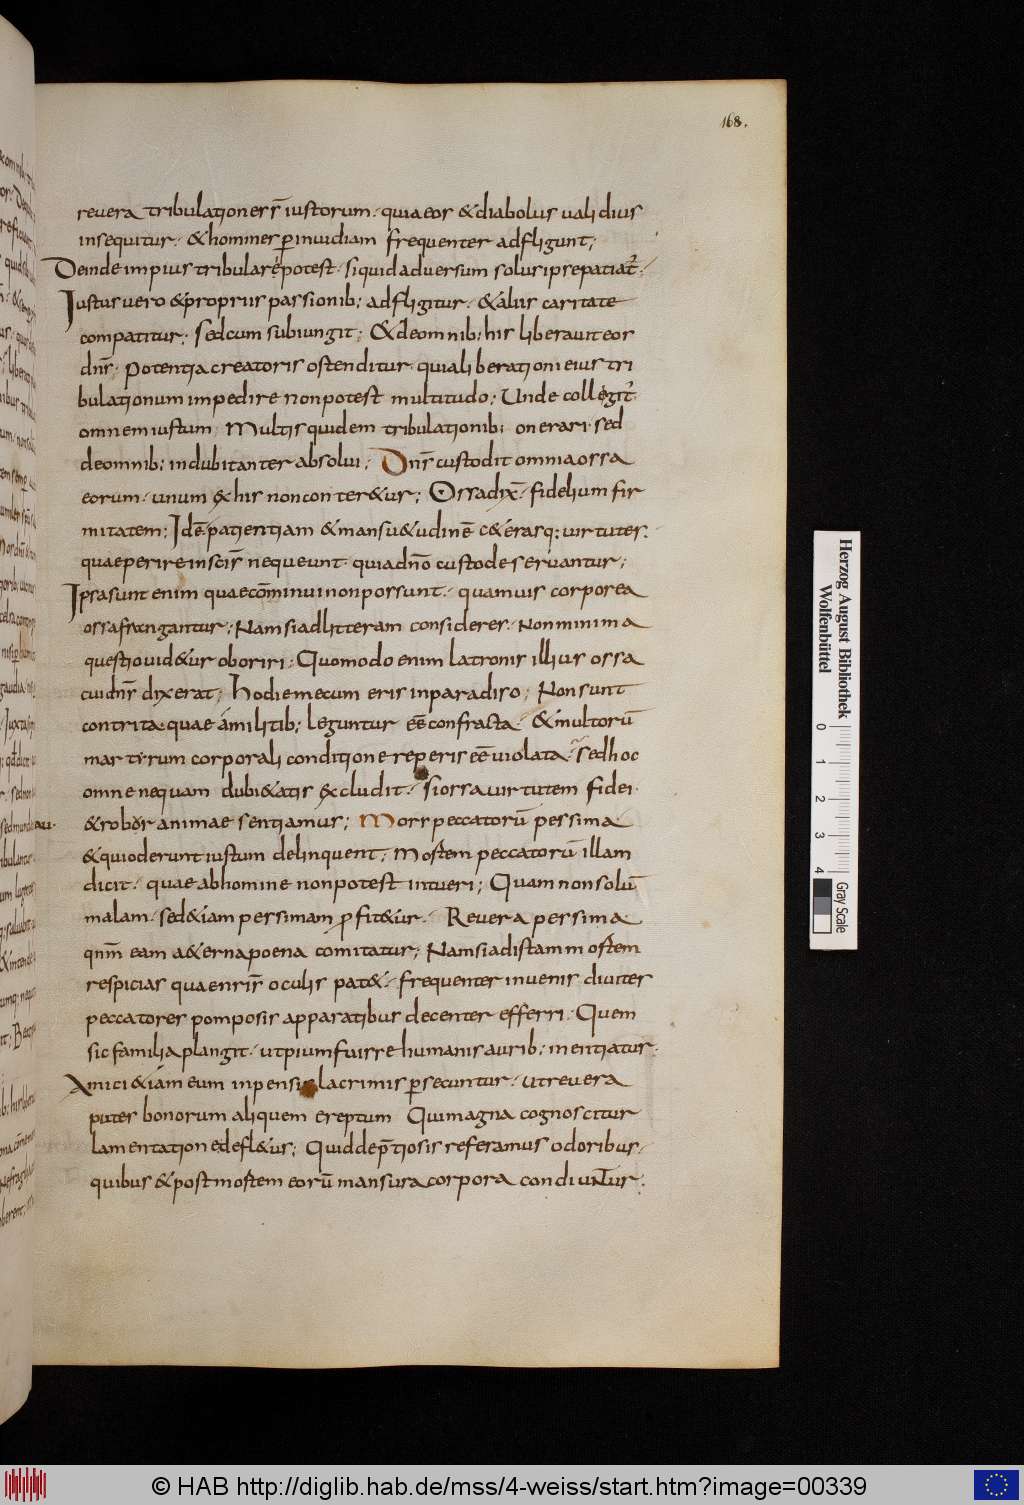 168.
revera tribulationes s̄ iustorum· quia eos &diabolus validius
insequitur· &homines ꝑ invidiam frequenter adfligunt;
Deinde impius tribulare potest· siquid adversum solus ipse patiat̄·
Iustus vero &propriis passionib; adfligitur· &aliis caritate
compatitur; sed cum subiungit; &deomnib; his liberavit eos
dn̄s· Potentia creatoris ostenditur· qui aliberationi eius tri
bulationum impedire nonpotest multitudo; Unde collegit·
omnem iustum, Multis quidem tribulationib; onerari· sed
deomnib; indubitanter absolvi; Dn̄s custodit omnia ossa
eorum· unum ex his non conter&ur; Ossa dix̄· fidelium fir
mitatem; Id ē patientiam &mansu&udinē c&erasq; virtutes·
quae perire inscīs nequeunt· quia dn̄o custode servantur;
Ipsa sunt enim quae cōminui non possunt· quamvis corporea
ossa frangantur; Nam siadlitteram consideres· Non minima
questio vid&ur oboriri; Quomodo enim latronis illius ossa
cui dn̄s dixerat; hodie mecum eris inparadiso; Non sunt
contrita· quae a militib; leguntur eē confracta· &multorū
martyrum corporali conditione reperis eē violata· sed hoc
omne nequam dubi&atis excludit· si ossa virtutem fidei·
&robor animae sentiamus; Mors peccatorū pessima
&qui oderunt iustum delinquent; Mortem peccatorū illam
dicit· quae abhomine nonpotest intueri; Quam non solū
malam· sed&iam pessimam ꝓfit&ur· Revera pessima
qn̄m eam a&erna poena comitatur; Nam si adistam mortem
respicias quae nr̄is s̄ oculis pat&· frequenter invenis divites
peccatores pomposis apparatibus decenter efferri· Quem
sic familia plangit· ut pium fuisse humanis aurib; mentiatur·
Amici &iam eum inpensis lacrimis ꝑsecuntur· ut revera
putes bonorum aliquem ereptum Qui magna cognoscitur
lamentatione defl&us; Quid de p̄tiosis referamus odoribus·
quibus &post mortem eorū mansura corpora condiuntur;
Herzog August Bibliothek
Wolfenbüttel
0 1 2 3 4
Gray Scale
© HAB http://diglib.hab.de/mss/4-weiss/start.htm?image=00339